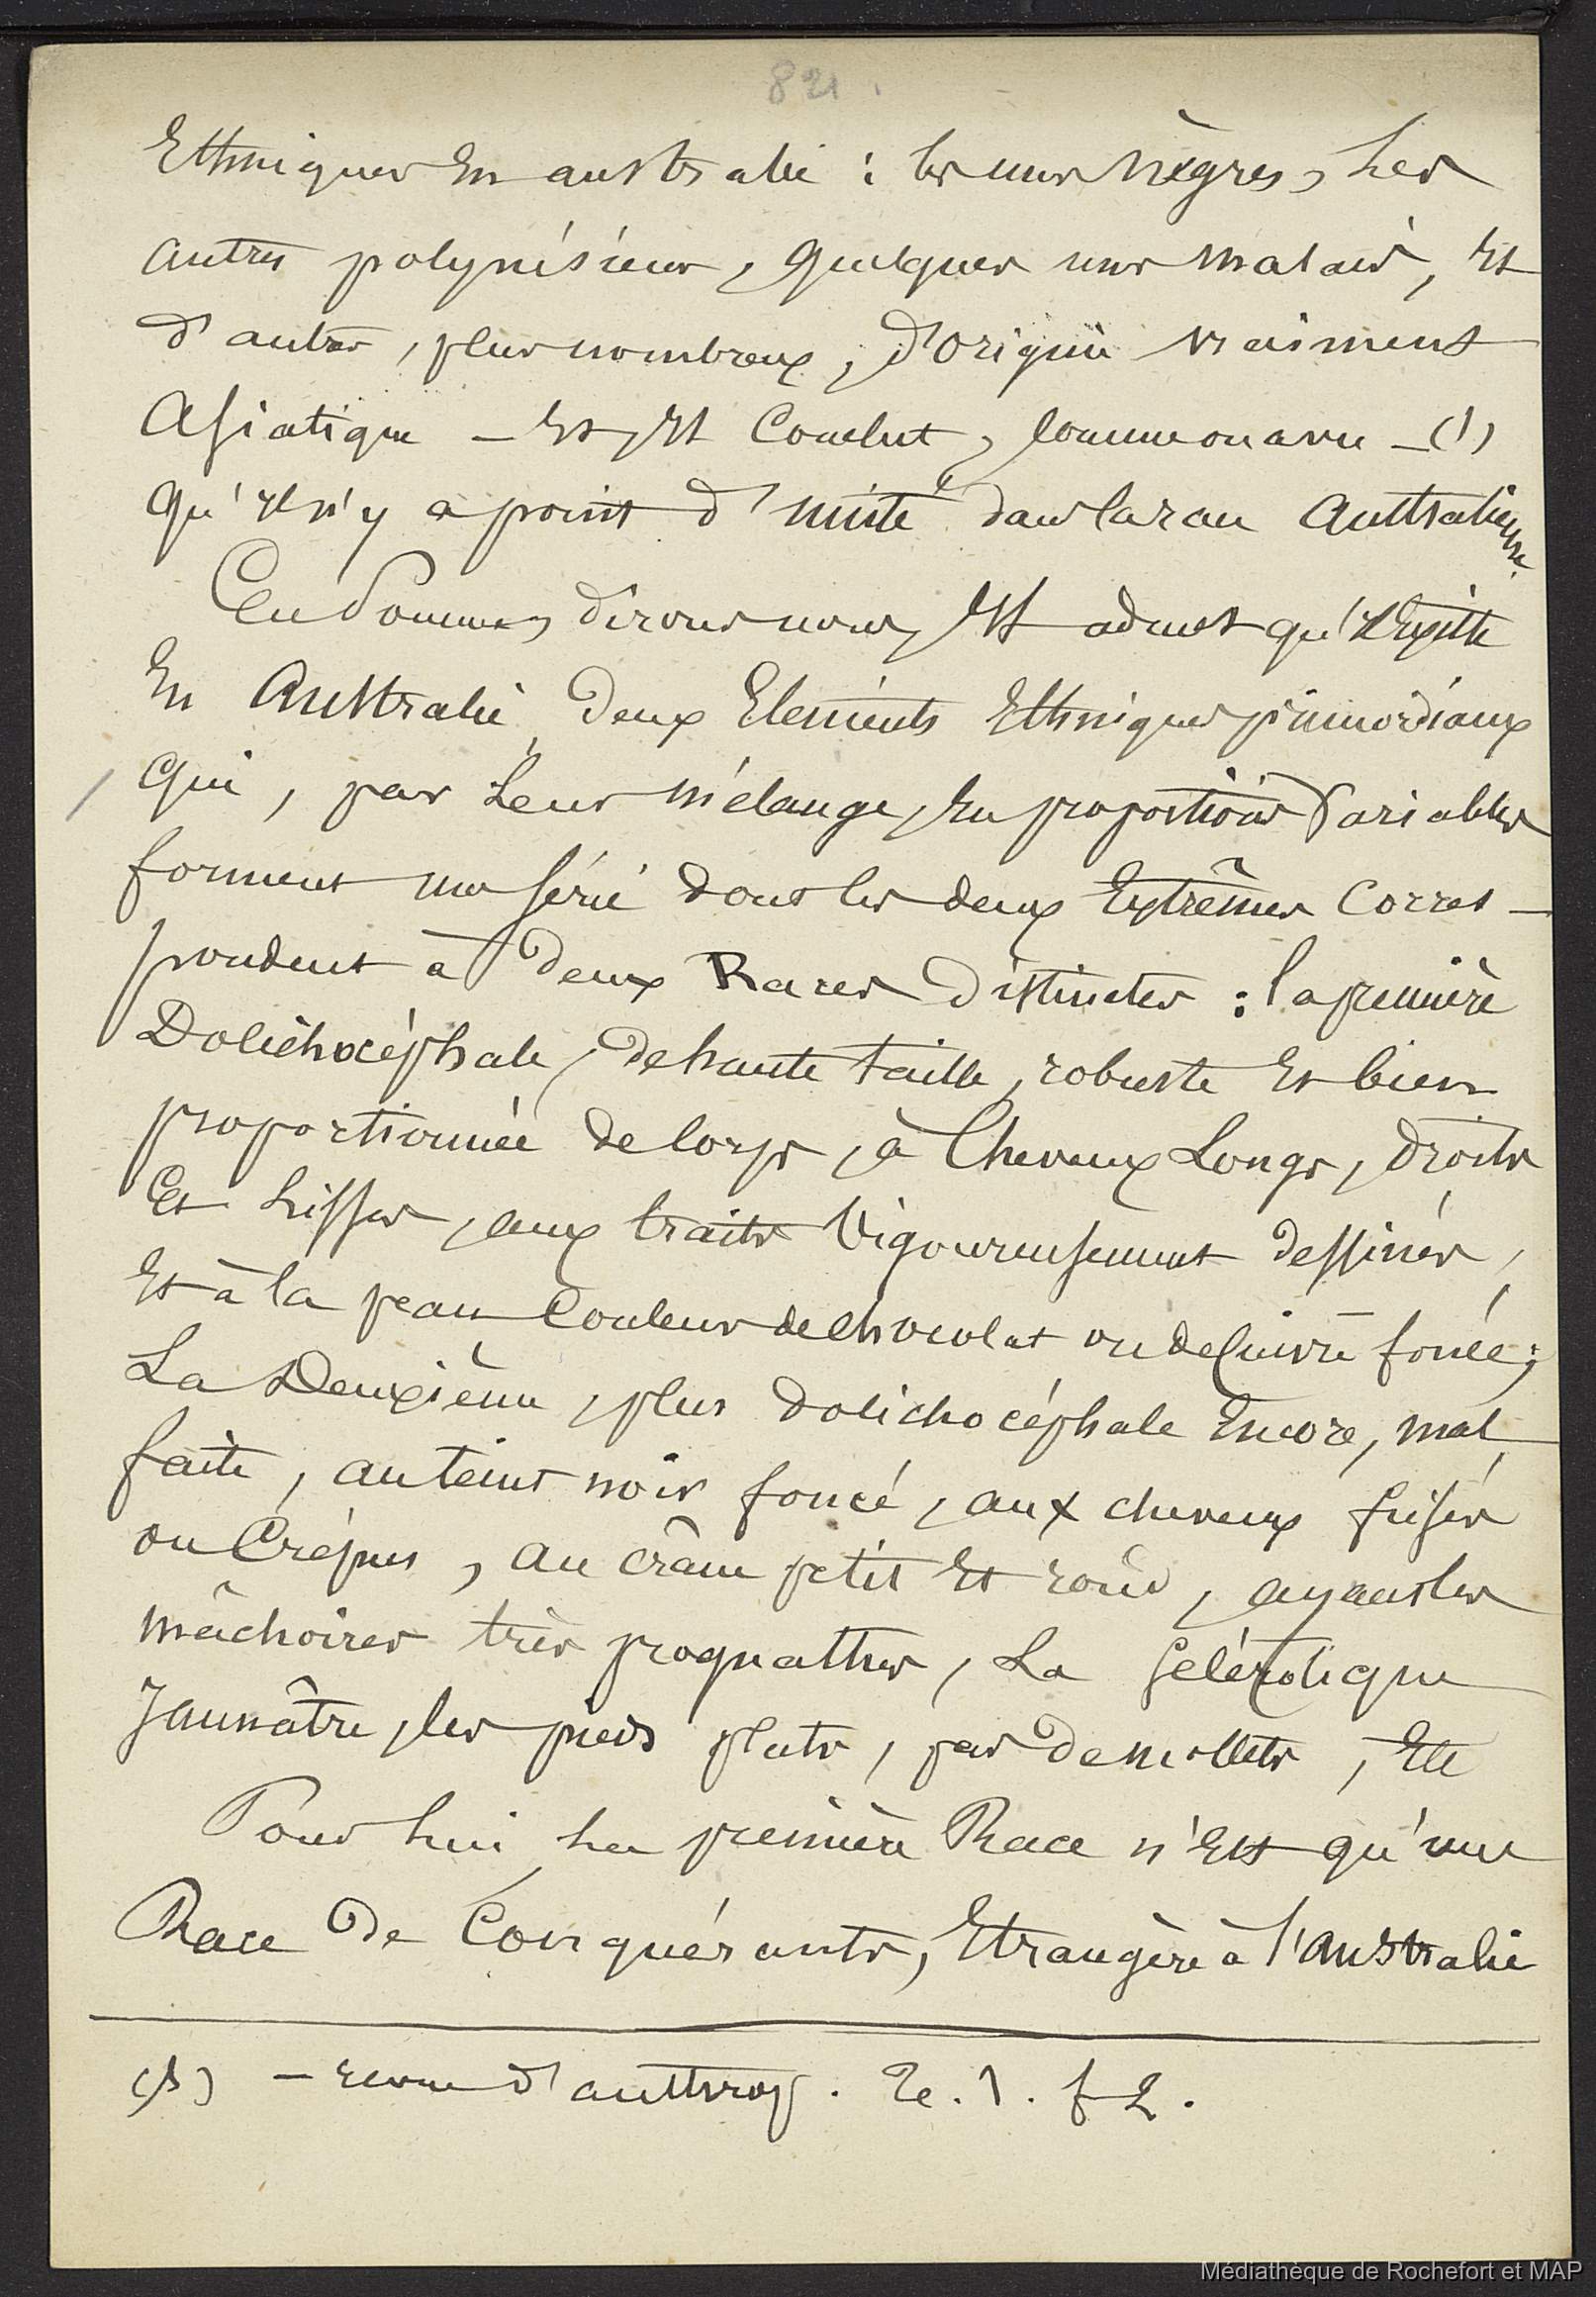 821.
Ethniques En australie : les uns nègres, Les
autres polynésiens, quelques uns malais, Et
d'autres, plus nombreux, d'origine vraiment
Asiatique — Et, Et Conclut, comme on a vu — (1)
qu'il n'y a point d'unité dans la race Australienne.
En Somme, dirons nous, Est admet qu'il Existe
En Australie, deux Eléments Ethniques primordiaux
qui, par Leur mélange, En proportions Variables
forment une série dont les deux Extrêmes Corres-
pondent à deux Races distinctes : la première
Dolichocéphale, de haute taille, robuste Et bien
proportionnée de Corps, à Cheveux Longs, droits
Et Lisses, aux traits Vigoureusement dessinés,
Et à la peau Couleur de chocolat ou de Cuivre foncé;
La Deuxième, plus dolichocéphale Encore, mal
faite, au teint noir foncé, aux cheveux frisés
ou Crépus, au crâne petit Et rond, ayant les
mâchoires très prognathes, La Sclérotique
Jaunâtre, les pieds plats, pas de mollets, Etc
Pour Lui, La première Race n'Est qu'une
Race de Conquérants, Etrangère à l'Australie
(1) — revue d'anthrop. Te. 1. f 2.
Médiathèque de Rochefort et MAP